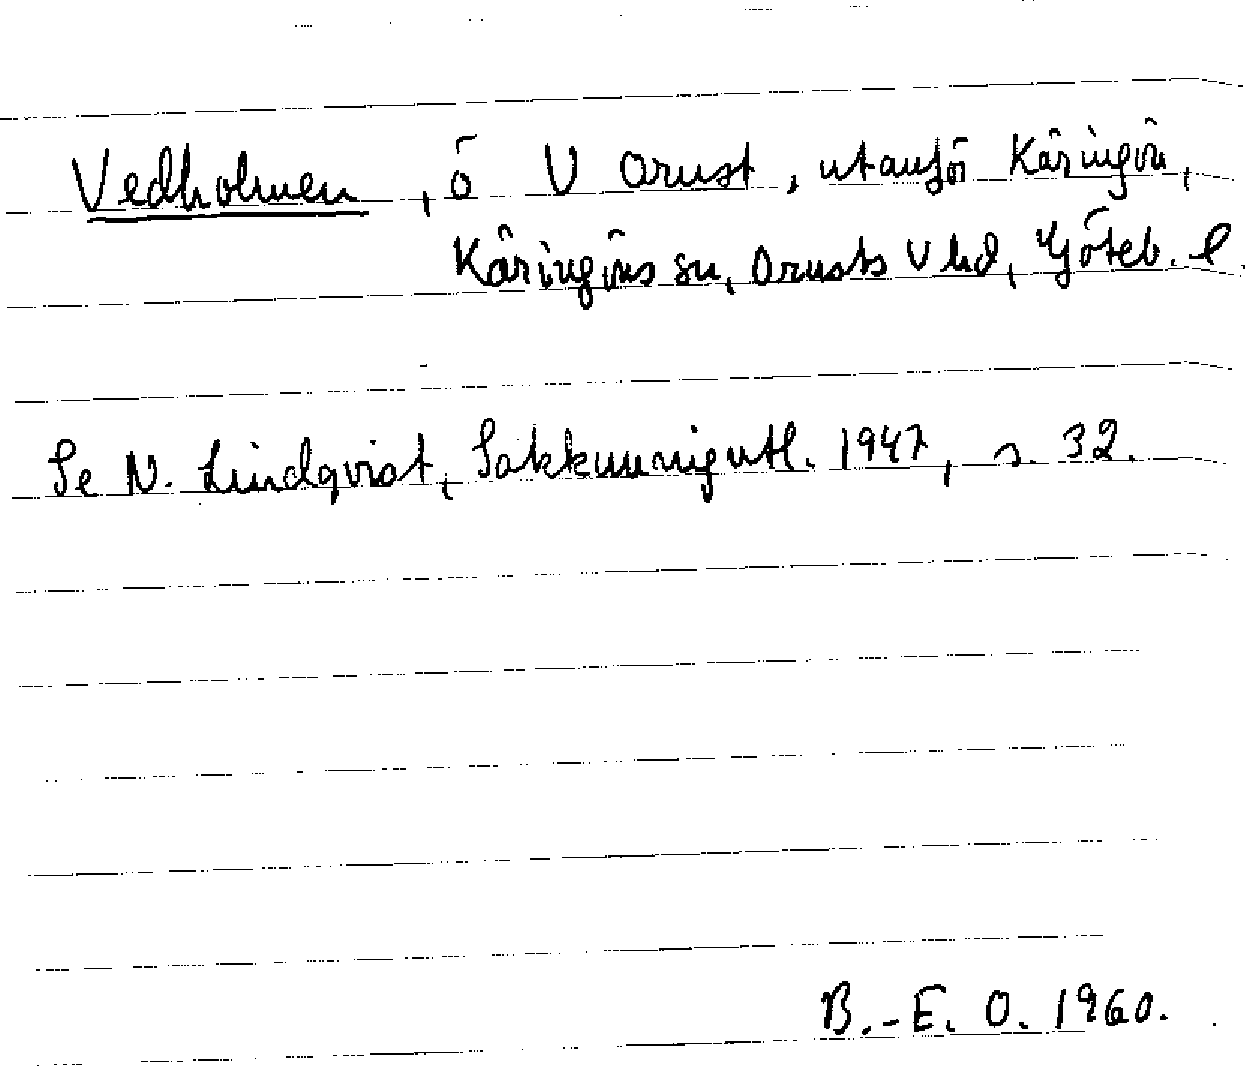 Vedholmen, ö V Orust, utanför Käringön,
Käringöns sn, Orusts V hd, Göteb. l.
Se N. Lindqvist, Sakkunnigutl. 1947, s. 32.
B.-E. O. 1960.